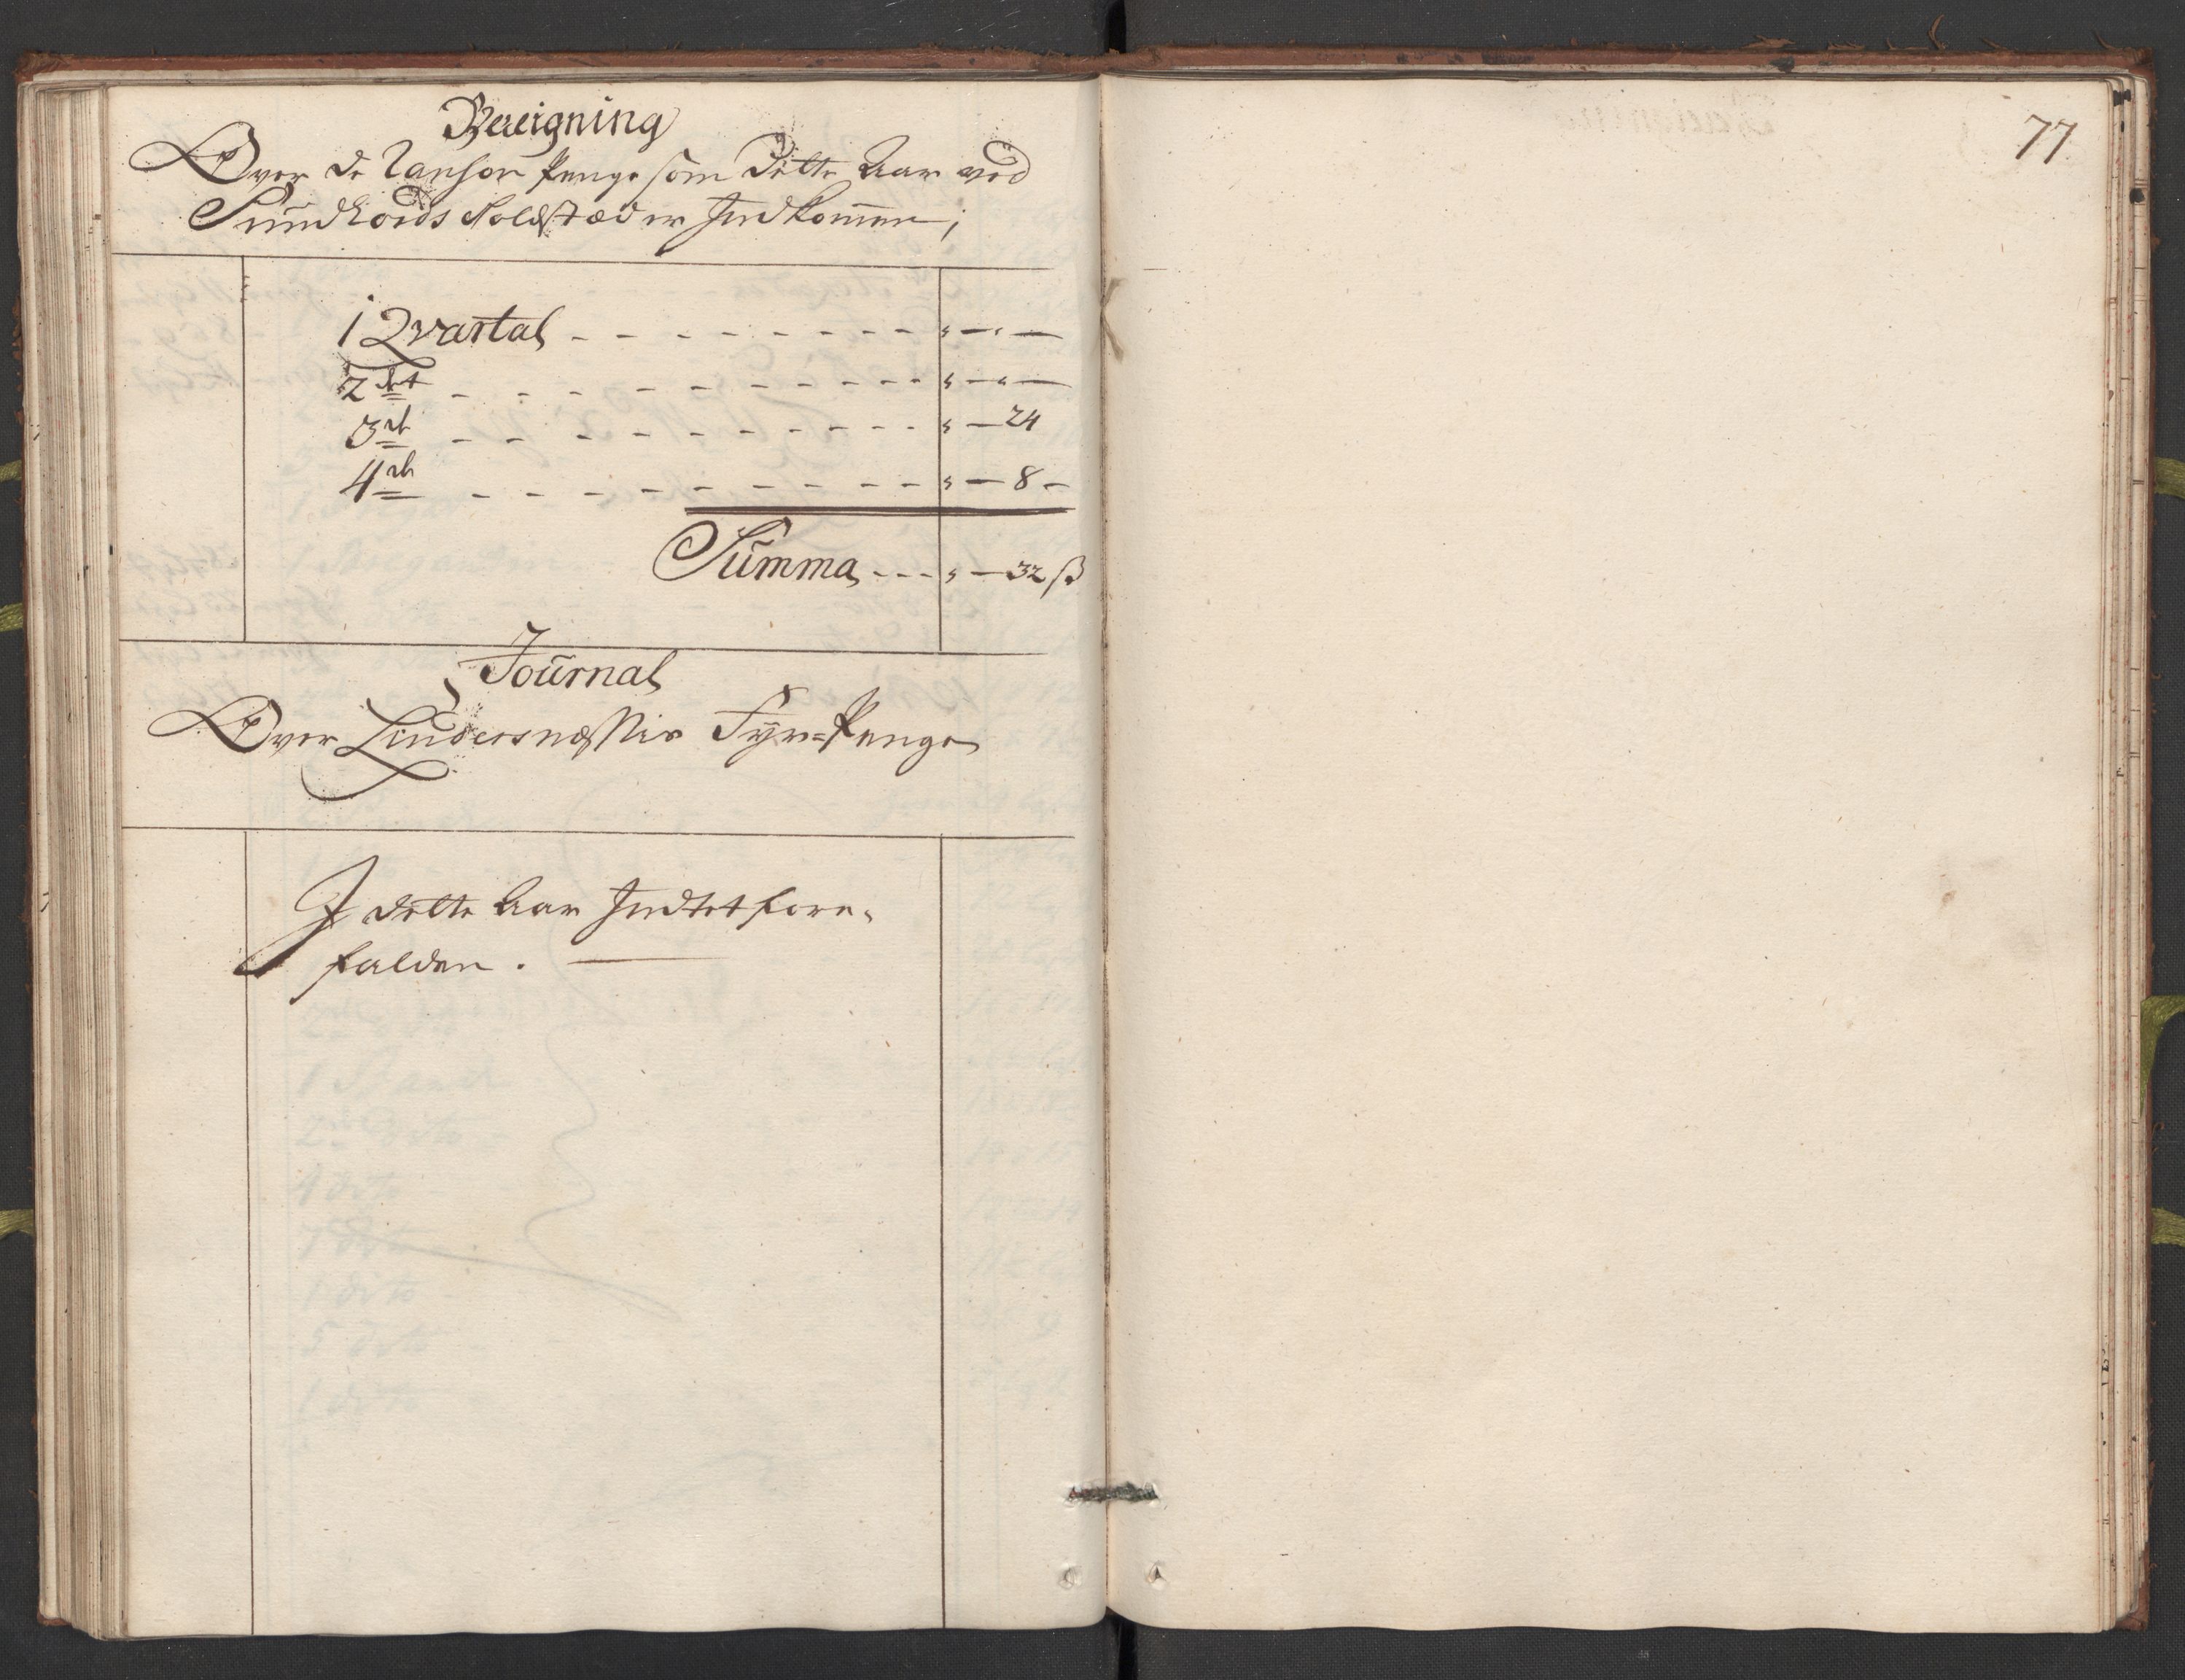 Bereigning
Over de Ranson Penge som dette Aar ved
Sundhords Toldstæd er Indkommen;
1 Qvartal - - - - - - - - - „ — „ —
2det - - - - - - - - - - „ — „ —
3de - - - - - - - - - - „ — 24
4de - - - - - - - - - - „ — 8 -
Summa - - - „ — 32 ß
Journal
Over Lindersnæssis Fyr=Penge
I dette Aar Indtet fore-
falden. —
77